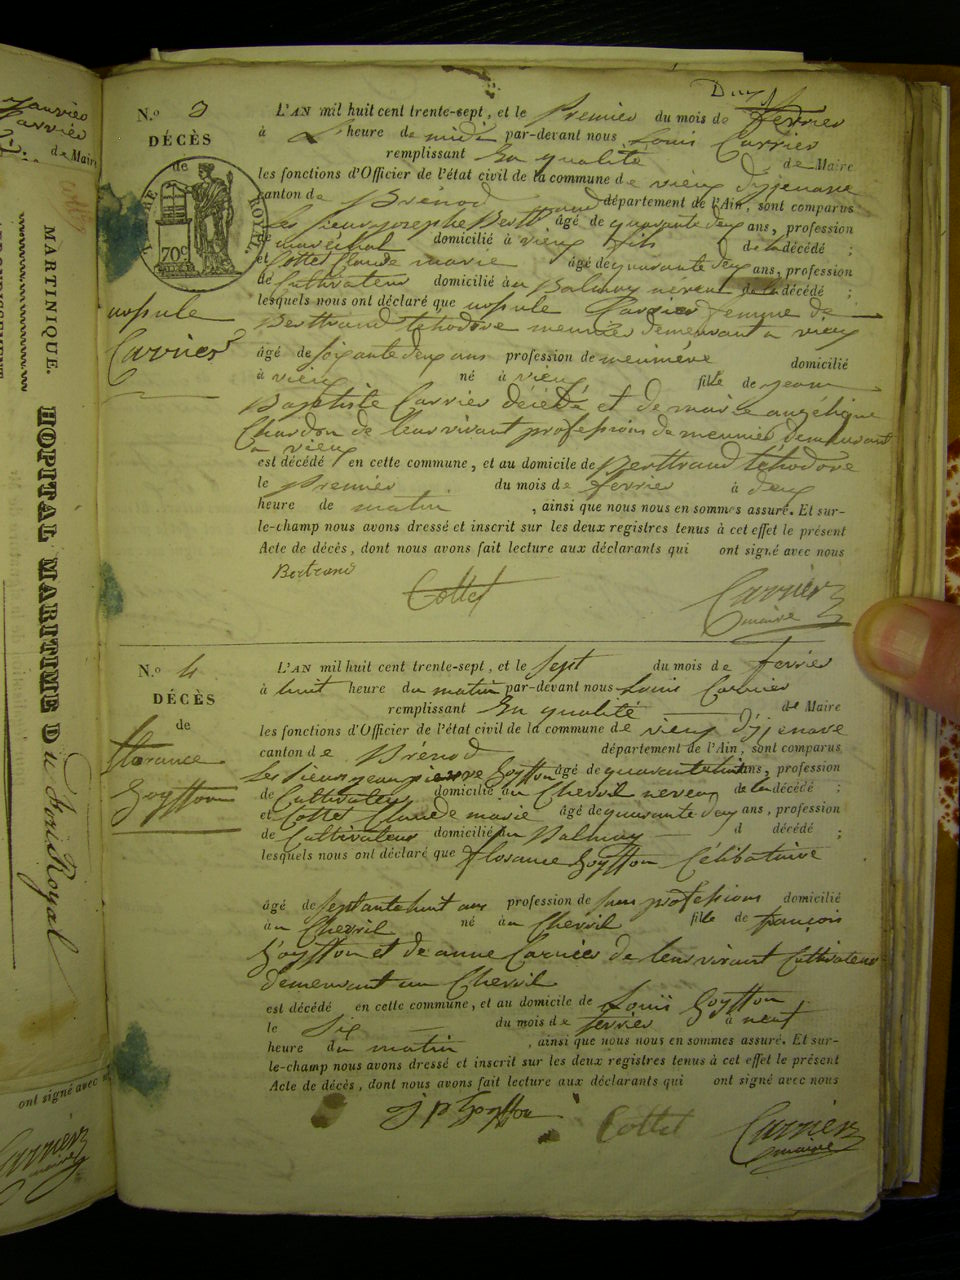 Janvier
Carrier
de Maire
MARTINIQUE.
HOPITAL MARITIME Du Fort Royal
ont signé avec
Carrier
maire
N.º 3
DÉCÈS
de
TIMBRE ROYAL.
70c
ursule
Carrier
Du
L'AN mil huit cent trente-sept, et le Premier du mois de fevrier
à heure de midi par-devant nous Louis Carrier
remplissant En qualité de Maire
les fonctions d'Officier de l'état civil de la commune de vieux d'izenave
canton de Brénod département de l'Ain, sont comparus
Les sieurs joseph Bertrand âgé de quarante deux ans, profession
de marechal domicilié à vieux fils de la décédé ;
et Cottet Claude marie âgé de quarante deux ans, profession
de Cultivateur domicilié au Balmay neveu de la décédé ;
lesquels nous ont déclaré que ursule Carrier femme de
Berttrand théodore meunier demeurant a vieux
âgé de soixante deux ans profession de meunière domicilié
à vieux né à vieux fille de jean
Baptiste Carrier décédé et de marie angélique
Chardon de leur vivant professions de meunier demeurant
a vieux
est décédé en cette commune, et au domicile de Berttrand théodore
le Premier du mois de fevrier à deux
heure de matin , ainsi que nous nous en sommes assuré. Et sur-
le-champ nous avons dressé et inscrit sur les deux registres tenus à cet effet le présent
Acte de décès, dont nous avons fait lecture aux déclarants qui ont signé avec nous
Bertrand
Cottet
Carrier
maire
N.º 4
DÉCÈS
de
florance
Goyffon
L'AN mil huit cent trente-sept, et le sept du mois de fevrier
à huit heure du matin par-devant nous Louis Carrier
remplissant En qualité de Maire
les fonctions d'Officier de l'état civil de la commune de vieux d'izenave
canton de Brénod département de l'Ain, sont comparus
Les sieurs jean pierre Goyffon âgé de quarante huit ans, profession
de Cultivateur domicilié au Chevril neveu de la décédé ;
et Cottet Claude marie âgé de quarante deux ans, profession
de Cultivateur domicilié au Balmay d décédé ;
lesquels nous ont déclaré que florance Goyffon Célibataire
âgé de septante huit ans profession de sans professions domicilié
au Chevril né au Chevril fille de françois
Goyffon et de anne Carrier de leur vivant Cultivateur
demeurant au Chevril
est décédé en cette commune, et au domicile de Louis Goyffon
le six du mois de fevrier à neuf
heure du matin , ainsi que nous nous en sommes assuré. Et sur-
le-champ nous avons dressé et inscrit sur les deux registres tenus à cet effet le présent
Acte de décès, dont nous avons fait lecture aux déclarants qui ont signé avec nous
j p Goyffon
Cottet
Carrier
maire